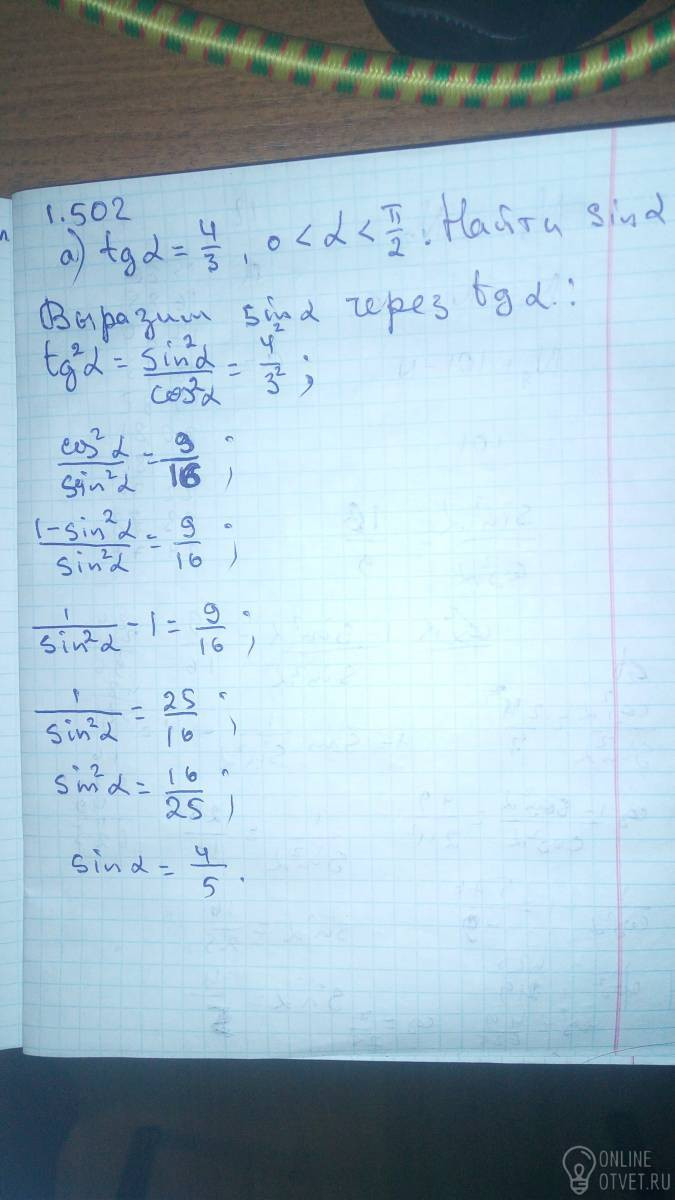 1.502
а) tg α = 4/3, 0 < α < π/2. Найти sin α
Выразим sin α через tg α:
tg²α = sin²α/cos²α = 4²/3²;
cos²α/sin²α = 9/16;
1-sin²α/sin²α = 9/16;
1/sin²α - 1 = 9/16;
1/sin²α = 25/16;
sin²α = 16/25;
sin α = 4/5.
ONLINE
OTVET.RU